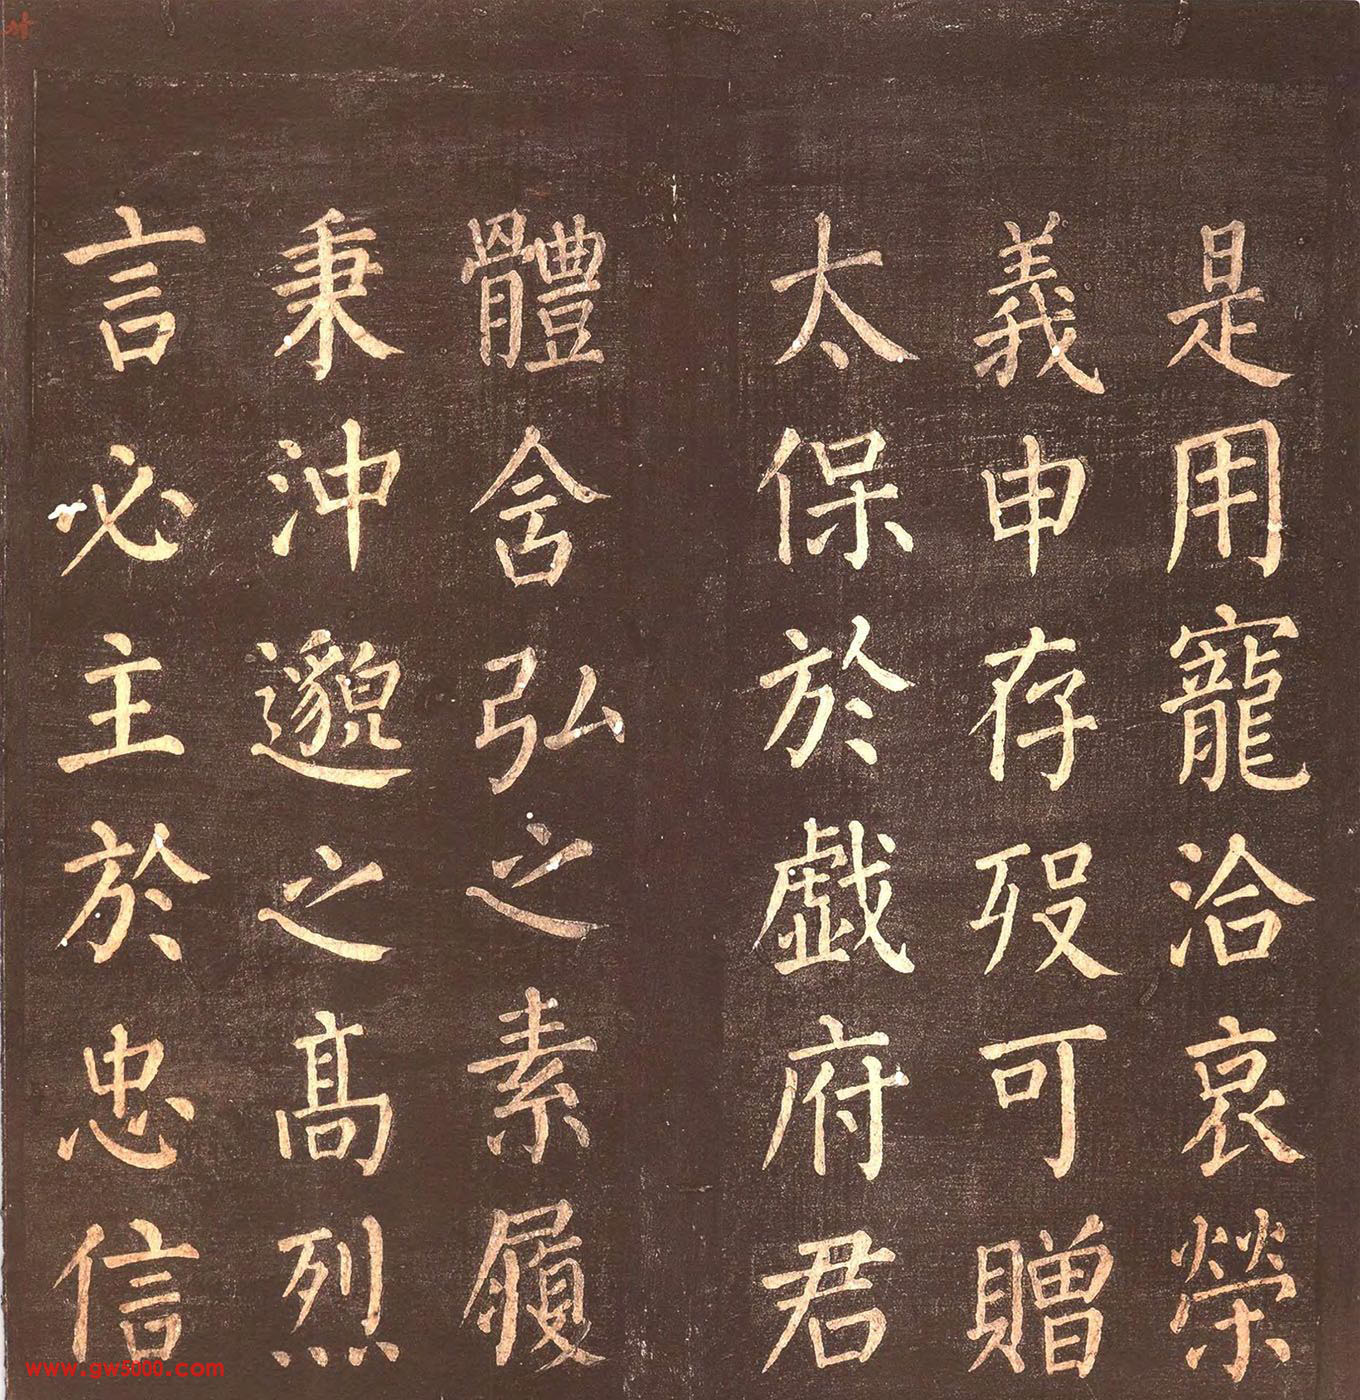 是用寵洽哀榮
義申存歿可贈
太保於戲府君
體含弘之素履
秉沖邈之高烈
言必主於忠信
www.gw5000.com